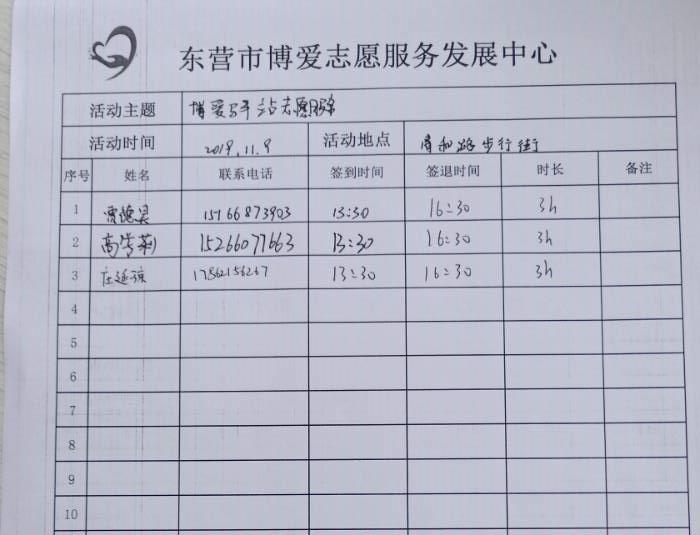 东营市博爱志愿服务发展中心
活动主题 博爱 站志愿服务
活动时间 2019.11.9 活动地点 步行街
序号 姓名 联系电话 签到时间 签退时间 时长 备注
1 贾德昊 15166873903 13:30 16:30 3h
2 高雪莉 15266077663 13:30 16:30 3h
3 庄延琼 17862156267 13:30 16:30 3h
4
5
6
7
8
9
10